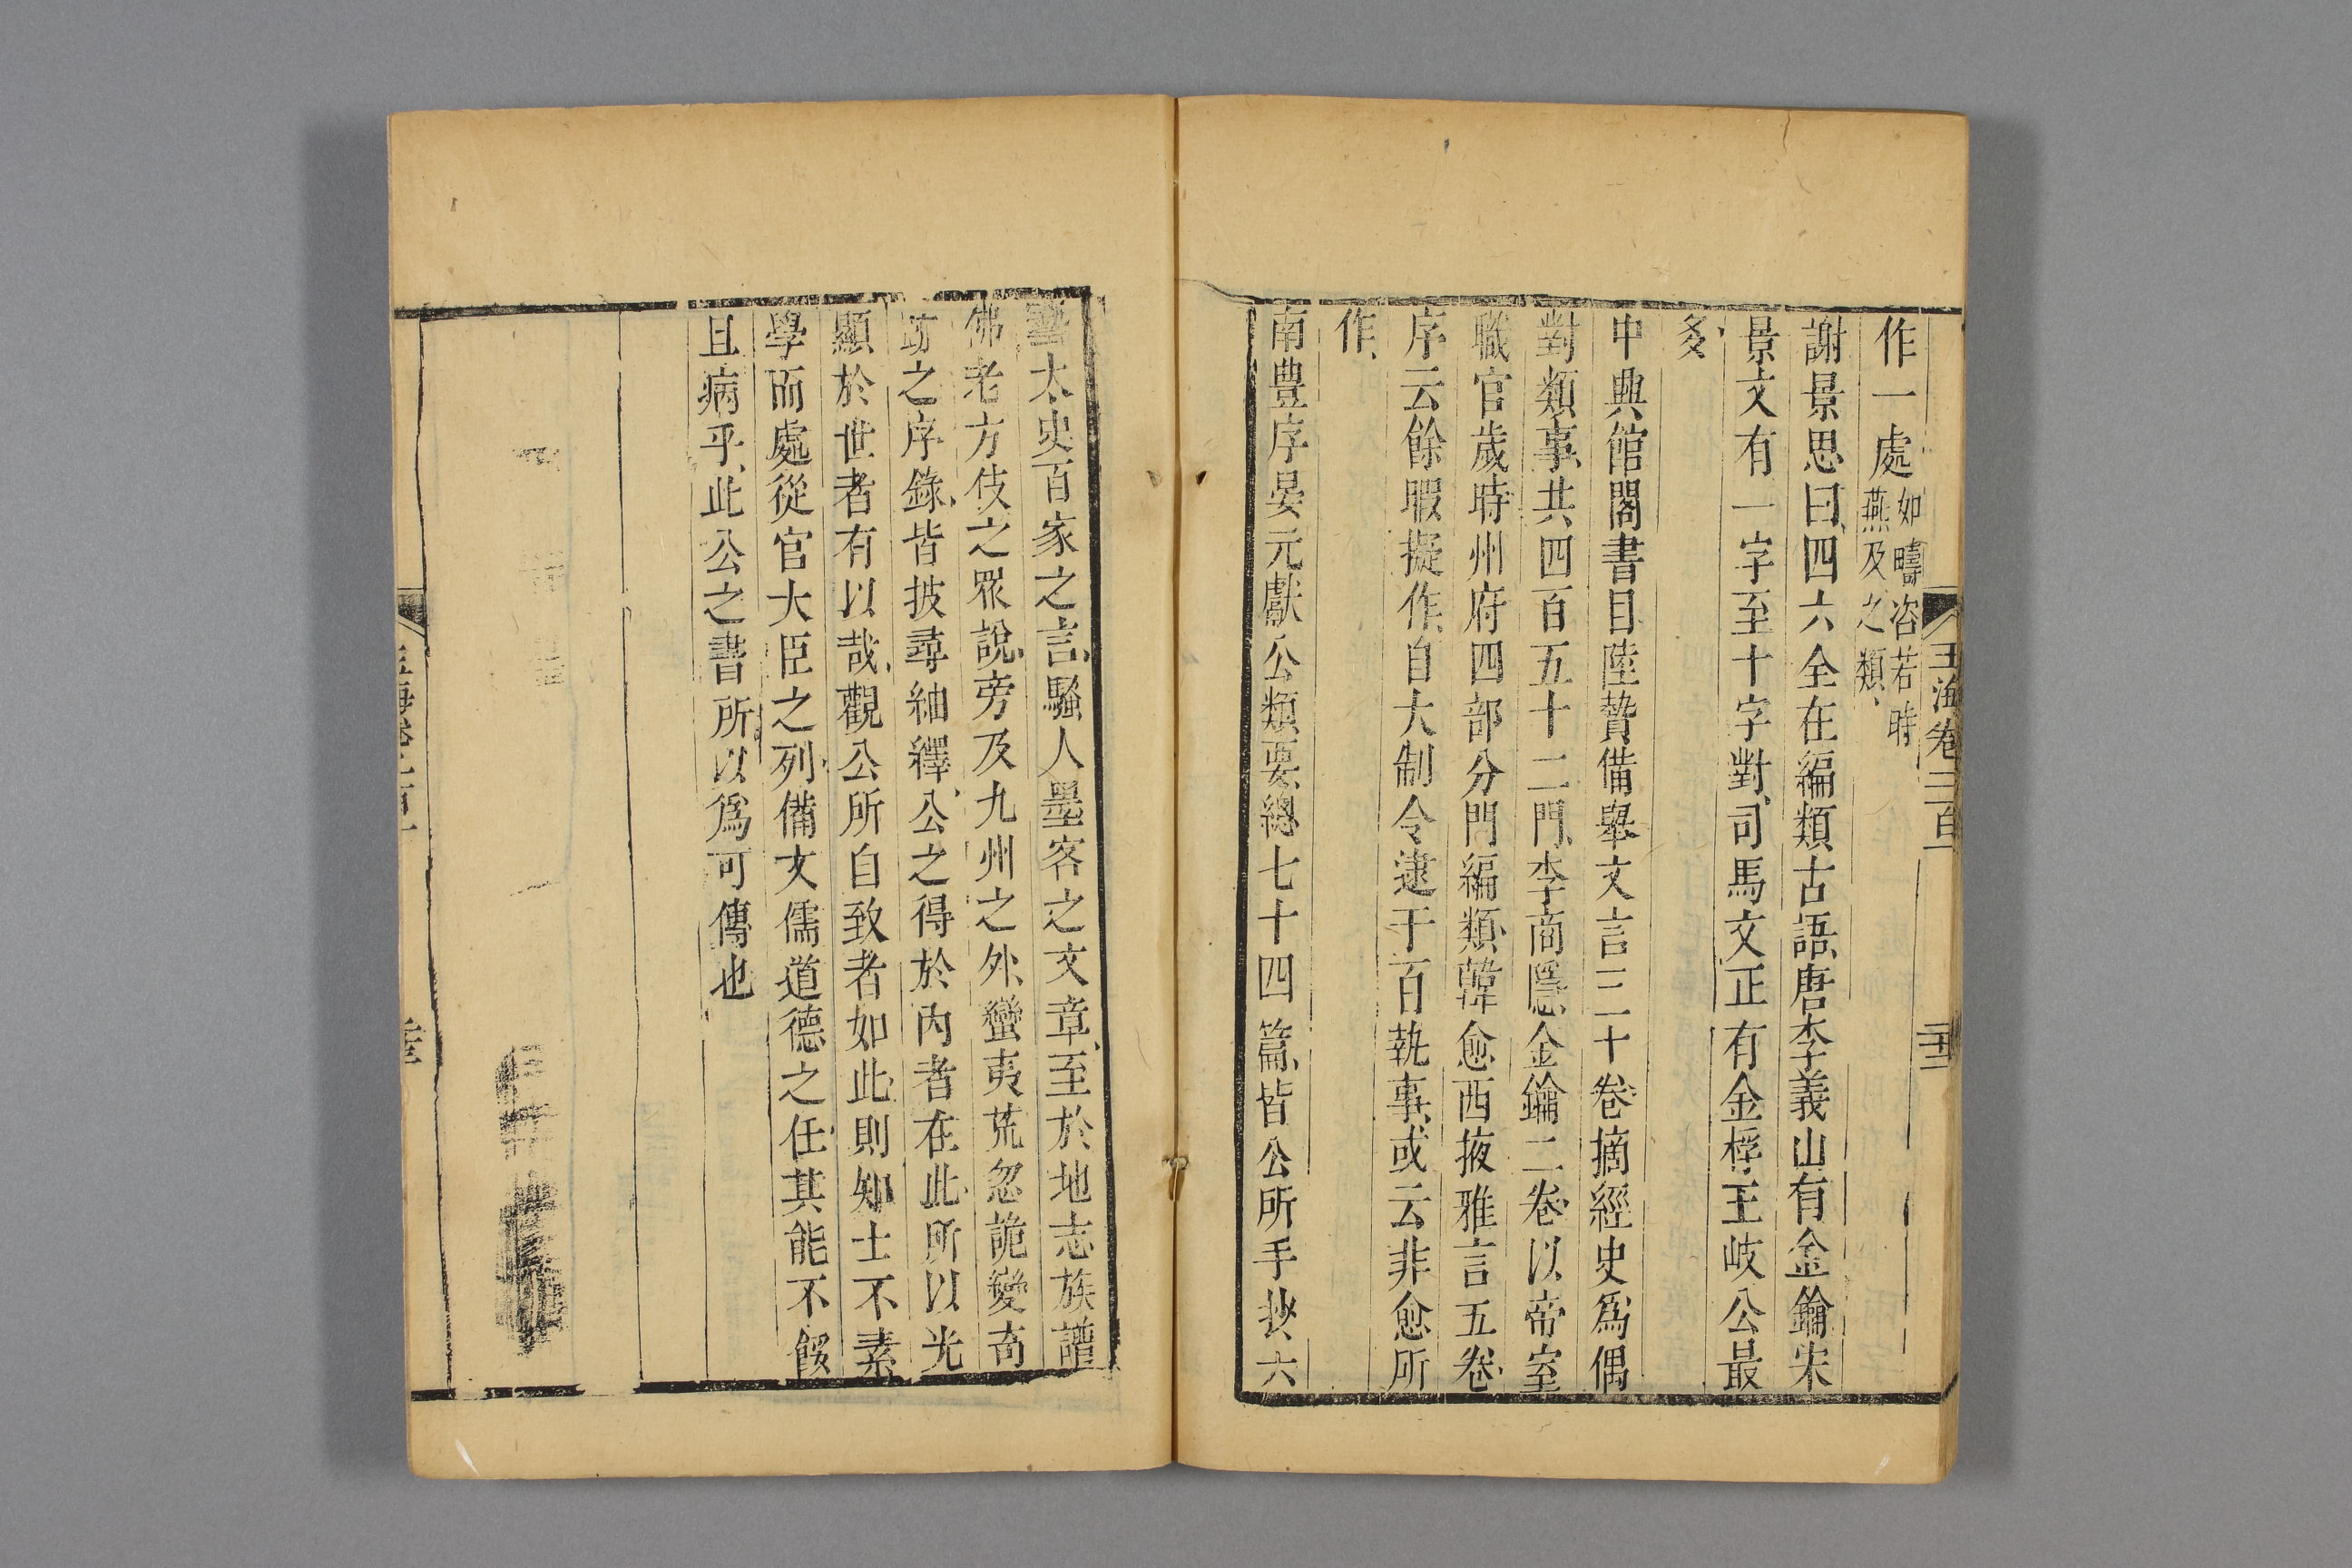 玉海卷二百一
作一處如疇咨若時
燕及之類
謝景思曰四六全在編類古語唐李義山有金鑰宋
景文有一字至十字對司馬文正有金桴王岐公最
多
中興館閣書目陸贄備舉文言三十卷摘經史爲偶
對類事共四百五十二門李商隱金鑰二卷以帝室
職官歲時州府四部分門編類韓愈西掖雅言五卷
序云餘暇擬作自大制令逮于百執事或云非愈所
作
南豊序晏元獻公類要總七十四篇皆公所手抄六
藝太史百家之言騷人墨客之文章至於地志族譜
佛老方伎之眾說旁及九州之外蠻夷荒忽詭變奇
跡之序錄皆披尋紬繹公之得於內者在此所以光
顯於世者有以哉觀公所自致者如此則知士不素
學而處從官大臣之列備文儒道德之任其能不餒
且病乎此公之書所以爲可傳也